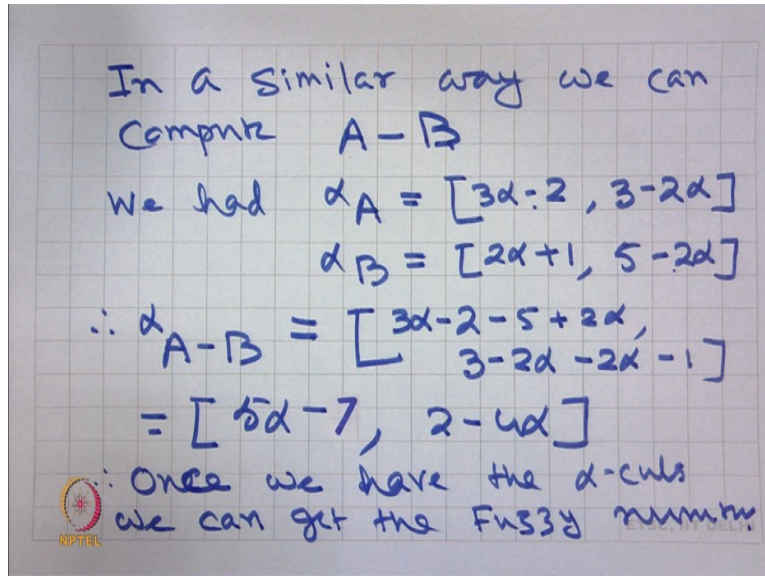 In a similar way we can
Compute A - B
We had αA = [3α-2, 3-2α]
αB = [2α+1, 5-2α]
∴ αA-B = [3α-2-5+2α,
3-2α-2α-1]
= [5α-7, 2-4α]
∴ Once we have the α-cuts
we can get the Fuzzy number
NPTEL
ETSC, IIT DELHI